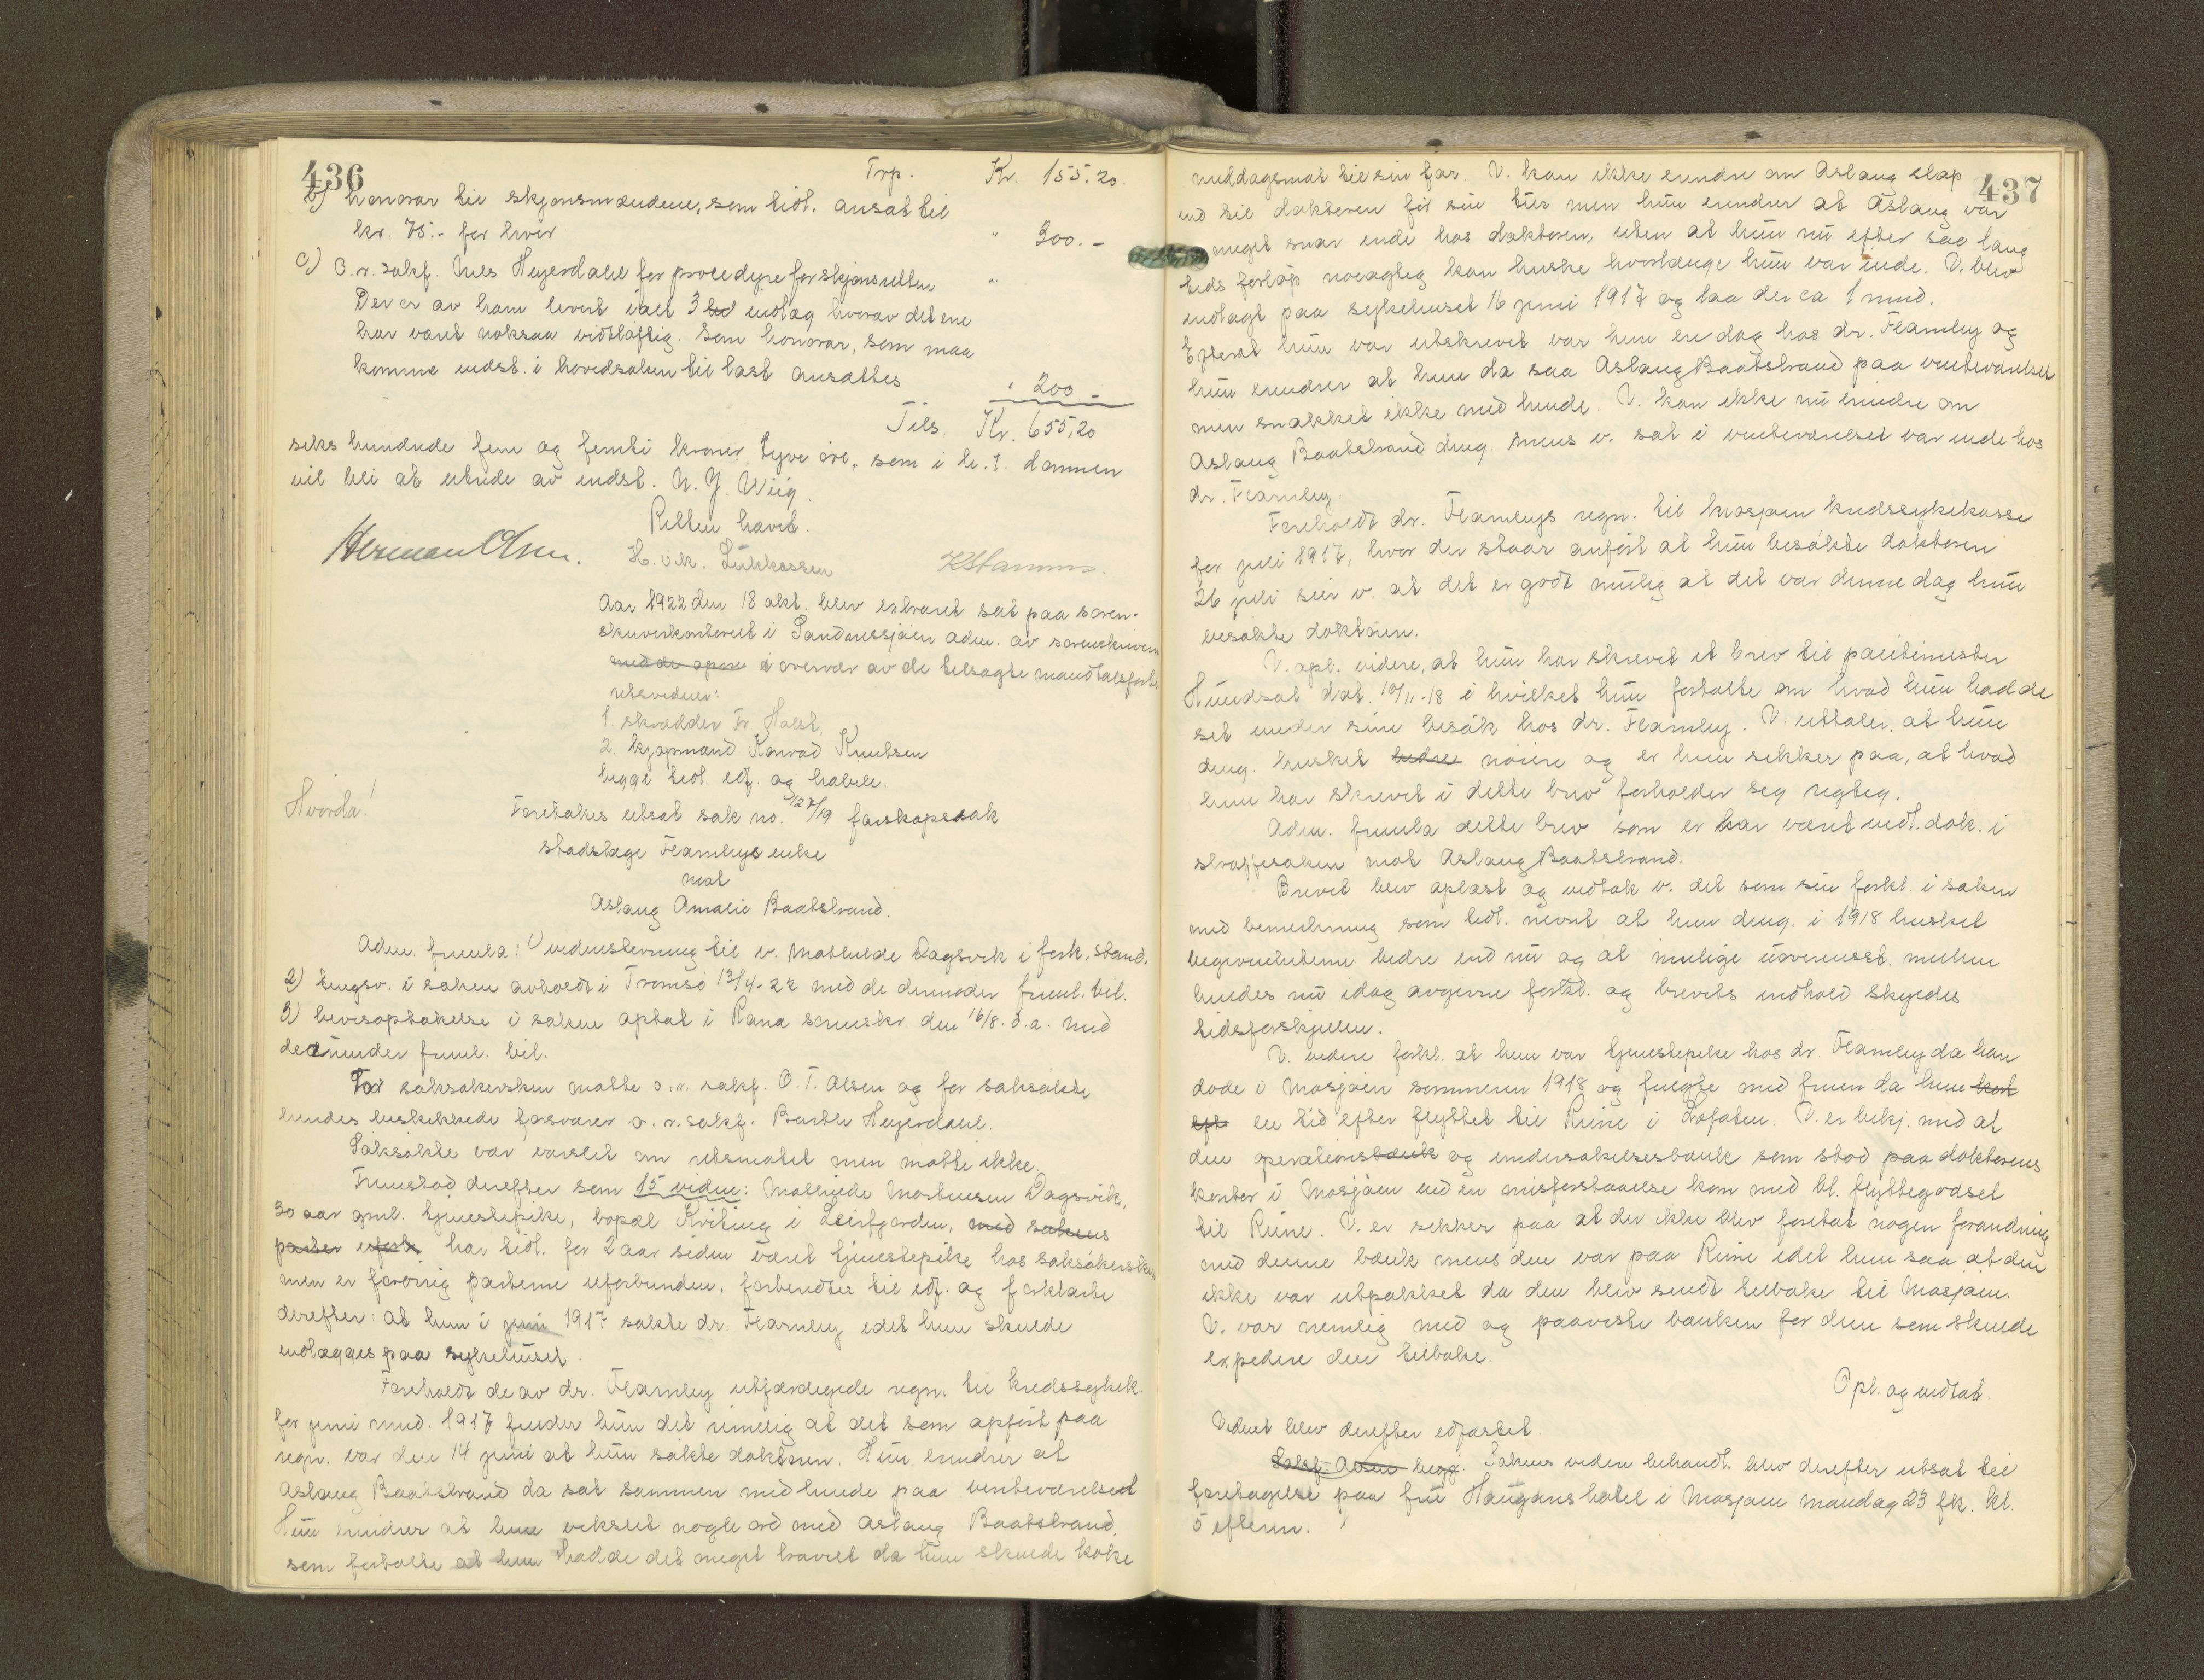 436
Trp. Kr. 155.20.
b) honorar til skjønsmændene, som tidl. ansat til
kr. 75.- for hver " 300.-
c) O.r.sakf. Nils Heyerdahl for procedyre for skjønsretten "
Der er av ham levert ialt 3 indlæg hvorav det ene
har været noksaa vidtløftig. Som honorar, som maa
komme indst. i hovedsaken til last ansættes " 200.-
Tils. Kr. 655,20
seks hundrede fem og femti kroner tyve øre, som i h.t. dommen
vil bli at utrede av indst. N. J. Wiig.
Retten hævet.
Herman Olsen. H. vik. Lukkassen KStamnes.
Aar 1922 den 18 okt. blev extraret sat paa soren-
skriverkontoret i Sandnessjøen adm. av sorenskriveren
med de opn i overvær av de tilsagte mandtalsførte
retsvidner:
1. skrædder Fr. Holst,
2. kjøpmand Konrad Knutsen
begge tidl. edf. og habile.
Hvorda!
Foretokes utsat sak no. 127/19 farskapssak
stadslæge Fearnleys enke
mot
Aslaug Amalie Baatstrand.
Adm. freml: 1) vidnestevning til v. Mathilde Dagsvik i fork. stand.
2) tingsv. i saken avholdt i Tromsø 13/4-22 med de derunder freml. bil.
3) bevisoptakelse i saken optat i Rana sorenskr. den 16/8. d.a. med
derunder freml. bil.
For saksøkersken møtte o.r. sakf. O. T. Olsen og for saksøkte
hendes beskikkede forsvarer o.r.sakf. Barthr Heyerdahl.
Saksøkte var varslet om retsmøtet men møtte ikke.
Fremstod derefter som 15 vidne: Mathilde Mortensen Dagsvik,
30 aar gml. tjenestepike, bopæl Kviting i Leirfjorden, med sakens
parter har tidl. for 2 aar siden været tjenestepike hos saksøkersken
men er forøvrig parterne uforbunden, forberedtes til edf. og forklarte
derefter: at hun i juni 1917 søkte dr. Fearnley idet hun skulde
indlægges paa sykehuset.
Foreholdt de av dr. Fearnley utfærdigede regn. til kredssykek.
for juni mnd. 1917 finder hun det rimelig at det som opført paa
regn. var den 14 juni at hun søkte doktoren. Hun erindrer at
Aslaug Baatstrand da sat sammen med hende paa venteværelset
Hun erindrer at hun vekslet nogle ord med Aslaug Baatstrand,
som fortalte at hun hadde det meget travelt da hun skulde koke
437
middagsmat til sin far. V. kan ikke erindre om Aslaug slap
ind til doktoren før sin tur men hun erindrer at Aslaug var
meget snar inde hos doktoren, uten at hun nu efter saa lang
tids forløp nøiagtig kan huske hvorlænge hun var inde. V. blev
indlagt paa sykehuset 16 juni 1917 og laa der ca 1 mnd.
Efterat hun var utskrevet var hun en dag hos dr. Fearnley og
hun erindrer at hun da saa Aslaug Baatstrand paa venteværelset
men snakket ikke med hende. V. kan ikke nu erindre om
Aslaug Baatstrand dengg. mens v. sat i venteværelset var inde hos
dr. Fearnley.
Foreholdt dr. Fearnleys regn. til Mosjøen kredssykekasse
for juli 1917, hvor der staar anført at hun besøkte doktoren
26 juli sier v. at det er godt mulig at det var denne dag hun
besøkte doktoren.
V. opl. videre, at hun har skrevet et brev til politimester
Hundsal dat. 10/11-18 i hvilket hun fortalte om hvad hun hadde
set under sine besøk hos dr. Fearnley. V. uttaler, at hun
dengg. husket bedre nøiere og er hun sikker paa, at hvad
hun har skrevet i dette brev forholder seg rigtig.
Adm. fremla dette brev som er har været vedl. dok. i
straffesaken mot Aslaug Baatstrand.
Brevet blev oplæst og vedtok v. det som sin forkl. i saken
med bemerkning som tidl. nevnt at hun dengg. i 1918 husket
begivenheterne bedre end nu og at mulige uoverensst. mellem
hendes nu idag avgivne forkl. og brevets indhold skyldes
tidsforskjellen.
V. videre forkl. at hun var tjenestepike hos dr. Fearnley da han
døde i Mosjøen sommeren 1918 og fulgte med fruen da hun kort
eft en tid efter flyttet til Reine i Lofoten. V. er bekj. med at
den operationsbænk og undersøkelsesbænk som stod paa doktorens
kontor i Mosjøen ved en misforstaaelse kom med bl. flyttegodset
til Reine. V. er sikker paa at der ikke blev foretat nogen forandring
med denne bænk mens den var paa Reine idet hun saa at den
ikke var utpakket da den blev sendt tilbake til Mosjøen.
V. var nemlig med og paaviste bænken for dem som skulde
expedere den tilbake.
Opl. og vedtat.
Vidnet blev derefter edfæstet.
Sakf. Olsen begj. Sakens videre behandl. blev derefter utsat til
foretagelse paa fru Haugans hotel i Mosjøen mandag 23 fk. kl.
5 efterm.